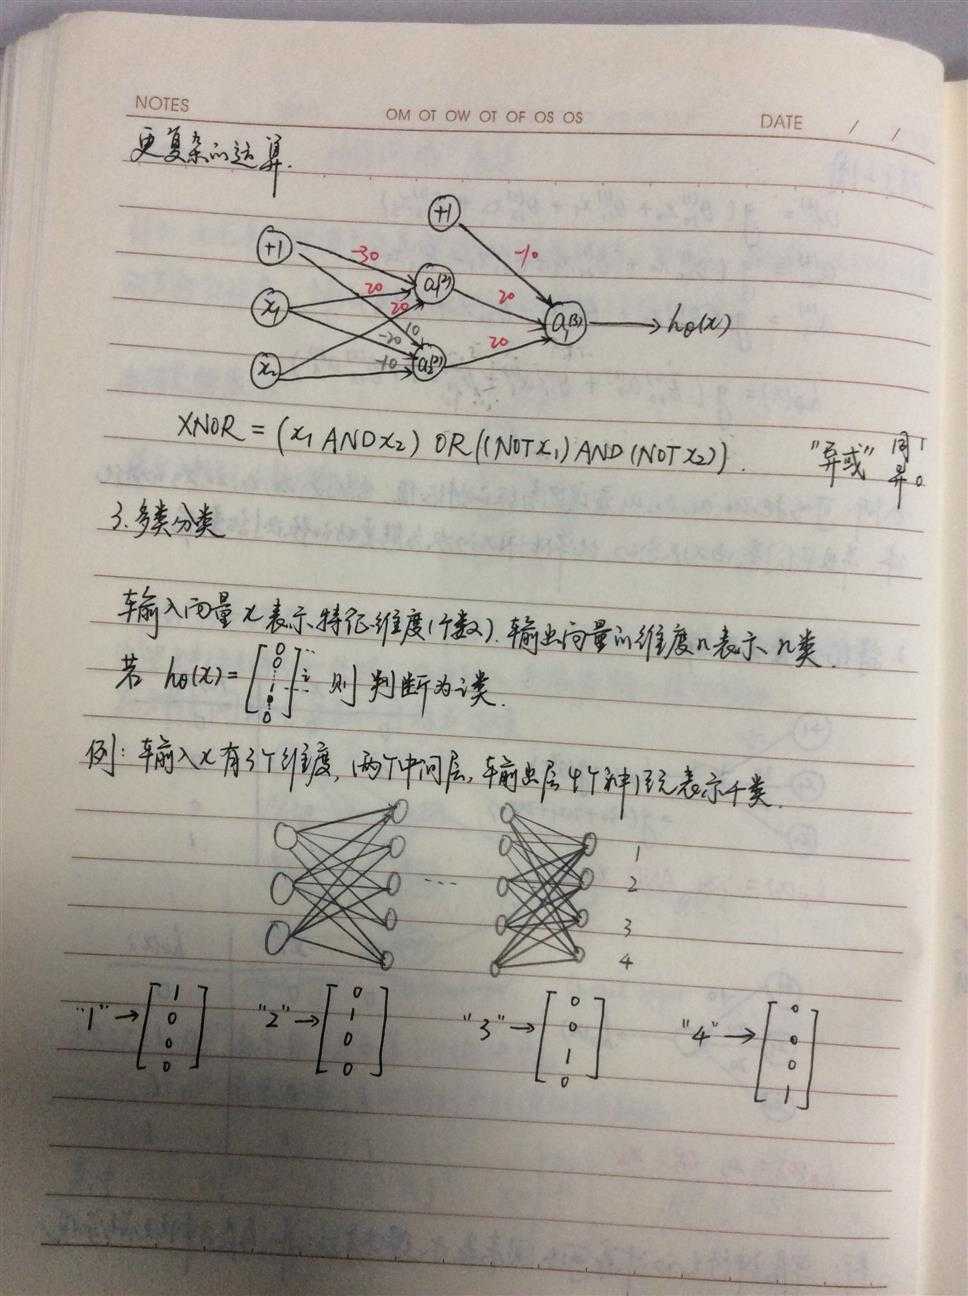 NOTES OM OT OW OT OF OS OS DATE / /
更复杂的运算.
+1
+1 -30 -10
20 a₁⁽²⁾
x₁ 20 20 a₁⁽³⁾ → hθ(x)
10
-20 20
x₂ -10 a₂⁽²⁾
XNOR = (x₁ AND x₂) OR ((NOT x₁) AND (NOT x₂)). "异或" 同1 异0
3. 多类分类
输入向量x表示特征维度(个数). 输出向量的维度n表示n类.
若 hθ(x) = [0 0 ⋮ 1 ⋮ 0] i 则判断为i类.
例: 输入x有3个维度, 两个中间层, 输出层4个神经元表示4类.
1
... 2
3
4
"1" → [1 0 0 0] "2" → [0 1 0 0] "3" → [0 0 1 0] "4" → [0 0 0 1]